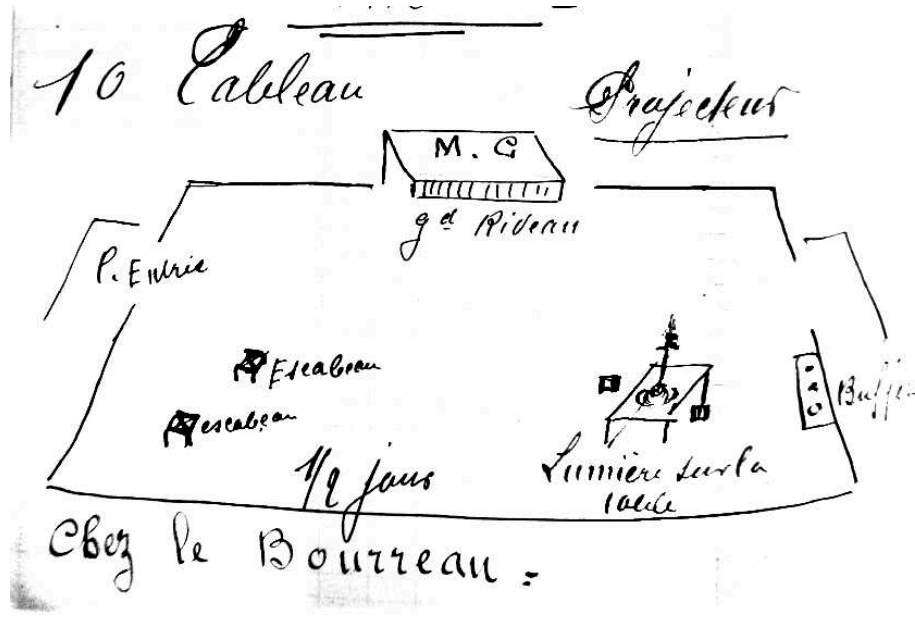 10 Tableau
Projecteur
M. G
gd Rideau
P. Entrée
Escabeau
escabeau
Buffet
1/2 jour
Lumière sur la
table
Chez le Bourreau.